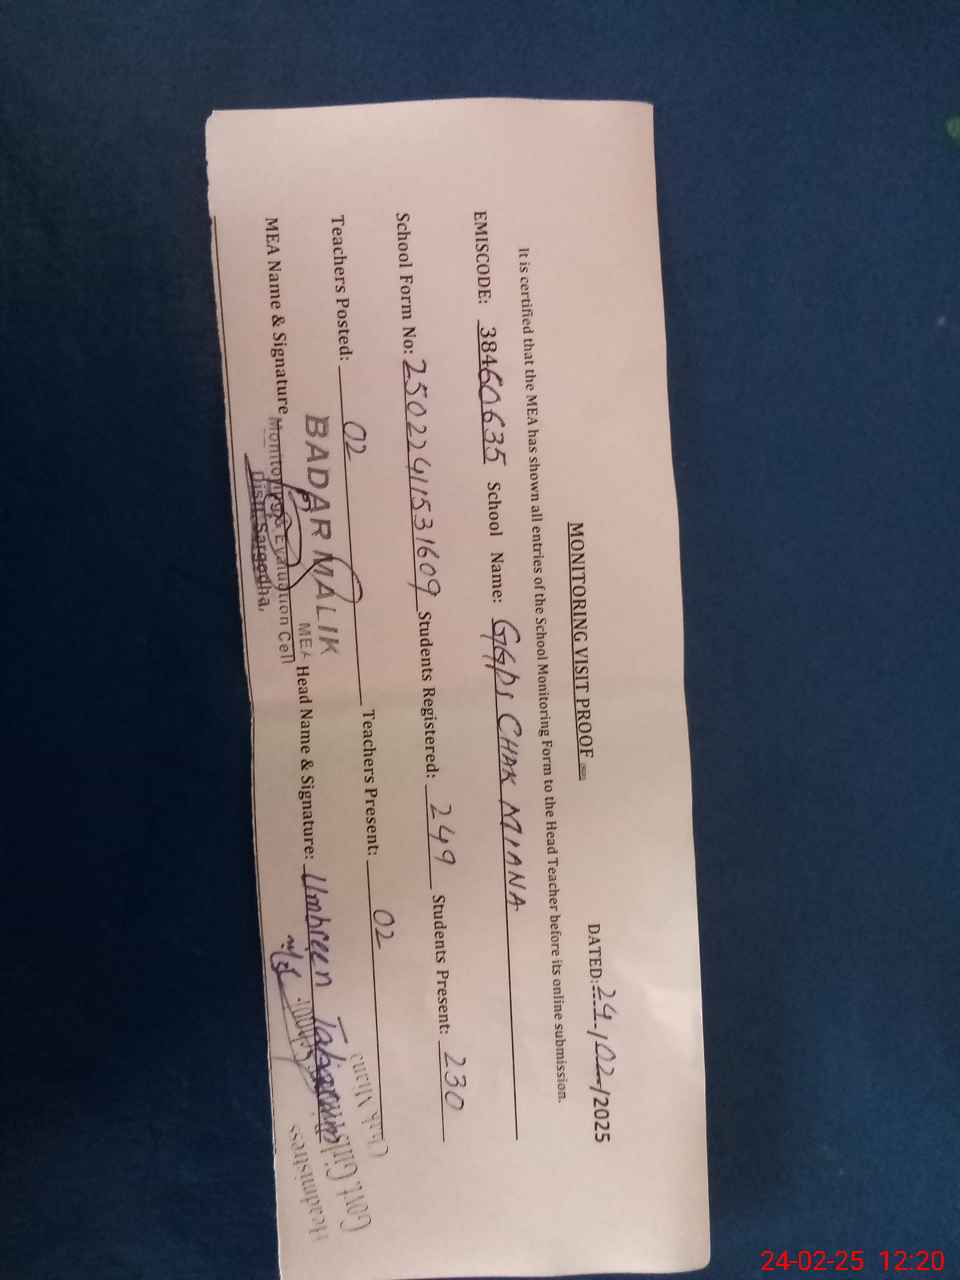 MONITORING VISIT PROOF
DATED: 24/02/2025
It is certified that the MEA has shown all entries of the School Monitoring Form to the Head Teacher before its online submission.
EMISCODE: 38460635 School Name: GGPS CHAK MIANA
School Form No: 2502241153 1609 Students Registered: 249 Students Present: 230
Teachers Posted: 02 Teachers Present: 02
BADAR MALIK
MEA
MEA Name & Signature Head Name & Signature: Umbreen
Monitoring & Evaluation Cell
Distt. Sargodha,
Headmistress
Govt. Girls
School
Chak Miana
24-02-25 12:20